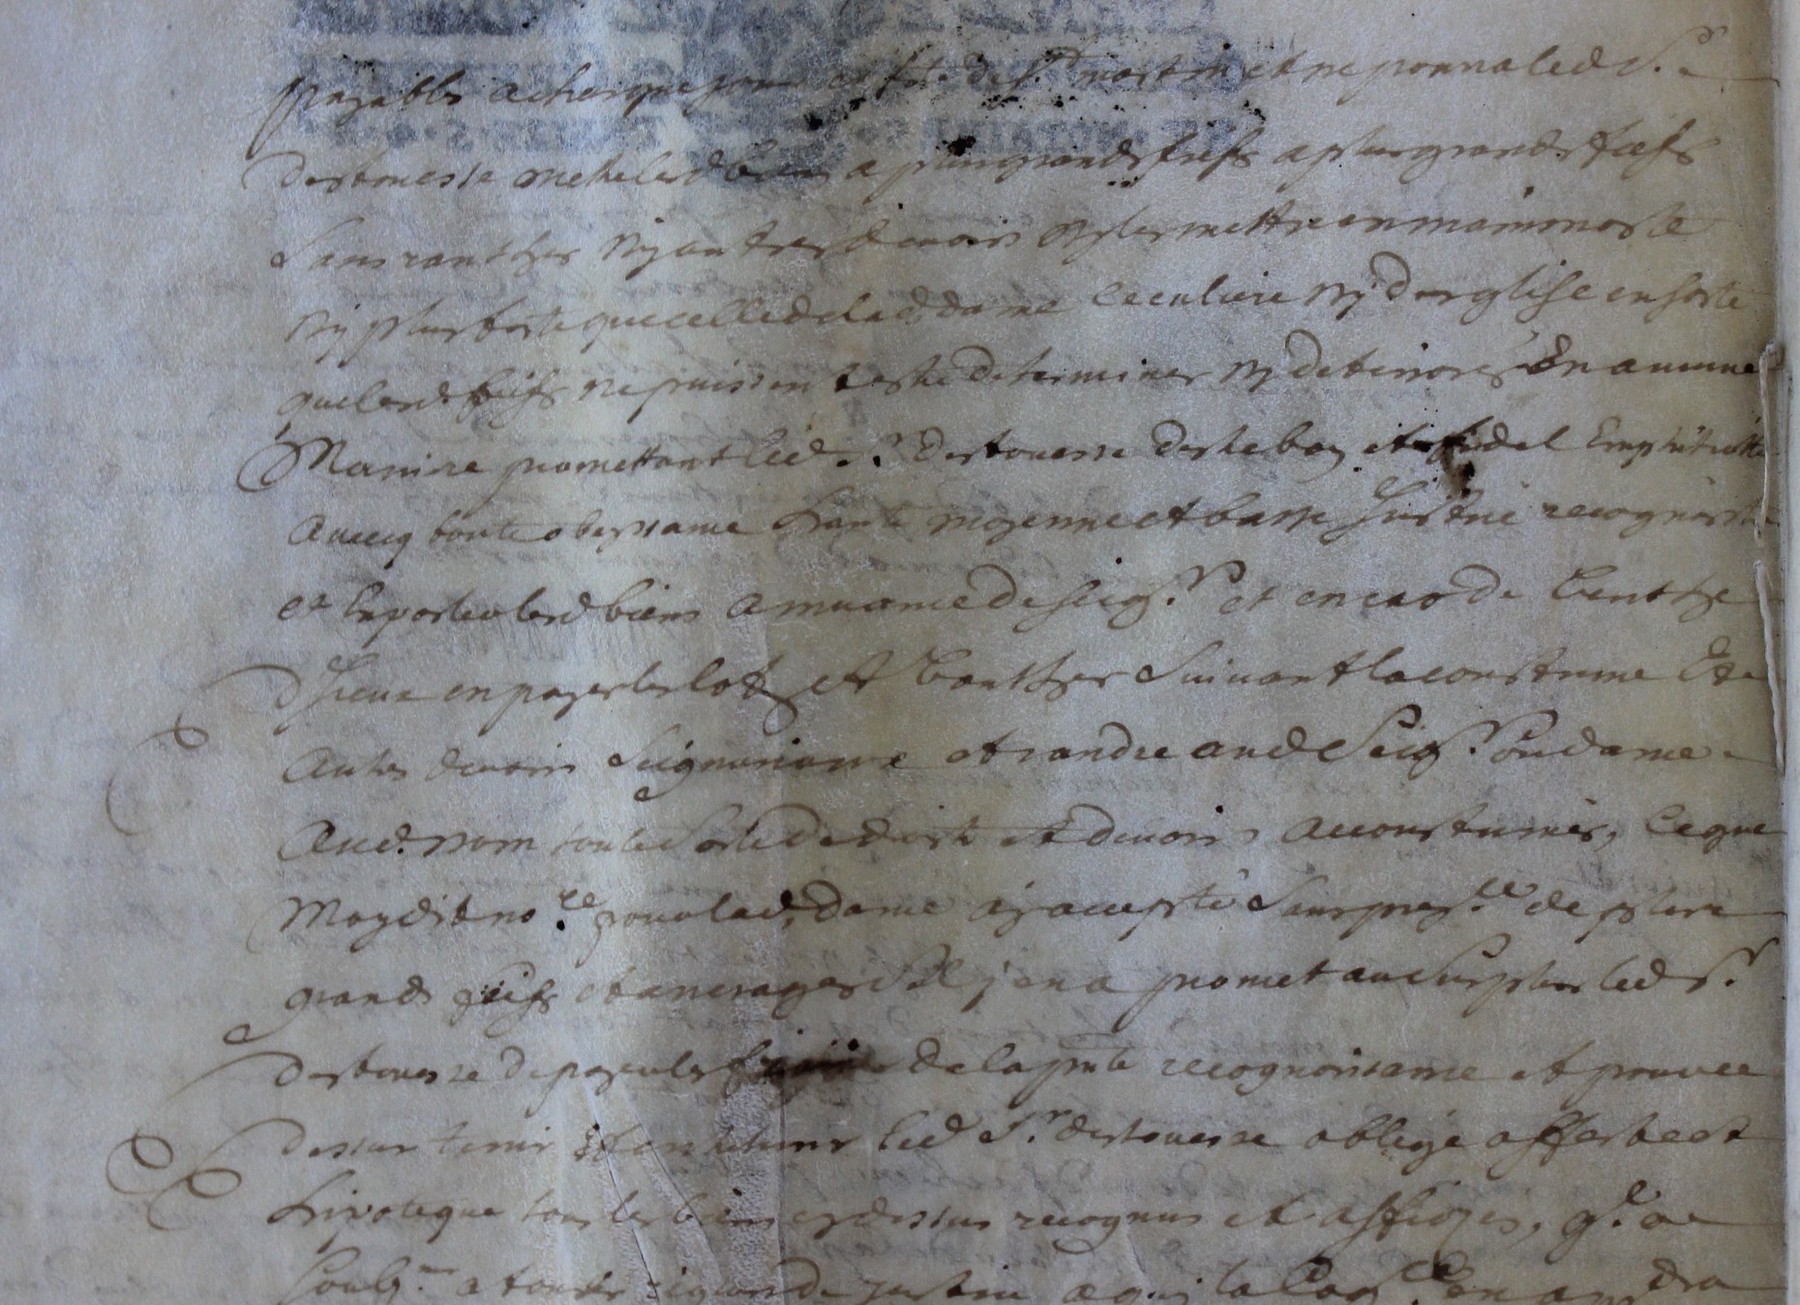 payables a chasque jour et feste de s.t martin et ne pourra led. s.r
destouesse mettre lesd biens a plus grands fiefs a plus grands fiefs
sans ranthes ny autres debvoirs ny les mettre en mainmorte
ny plus forte que celle de lad dame seculiere ny d'esglise en sorte
que lesd. fiefs ne puissent estre determines ny deteriorés En aucune
Maniere promettant led. s.r destouesse destre bon et fidel Emphiteotte
avecq toute obeyssance haute moyenne et basse justice recognoistre
et Exporter lesd biens a muance de seig.r et en cas de venthe
d'Iceux en payer les lotz et vanthes suivant la coustume Et
autres devoirs seigneuriaux et randre aud Seig.r ou dame
Aud. nom toute sorte de droits et devoirs accoustumés, Ce que
Moydit no.re pour lad. dame ay accepté sans prej.ce de plus
grands fiefs et arrerages s'il y en a promet au surplus led s.r
destouesse de payer les fraix de la pnte recognoissance et pour ce
dessus tenir et entretenir led s.r destouesse oblige affecte et
hipoteque tous les biens cy dessus recognus et assiezés, q.l a
soubz.mis a toutes rigueurs de justice